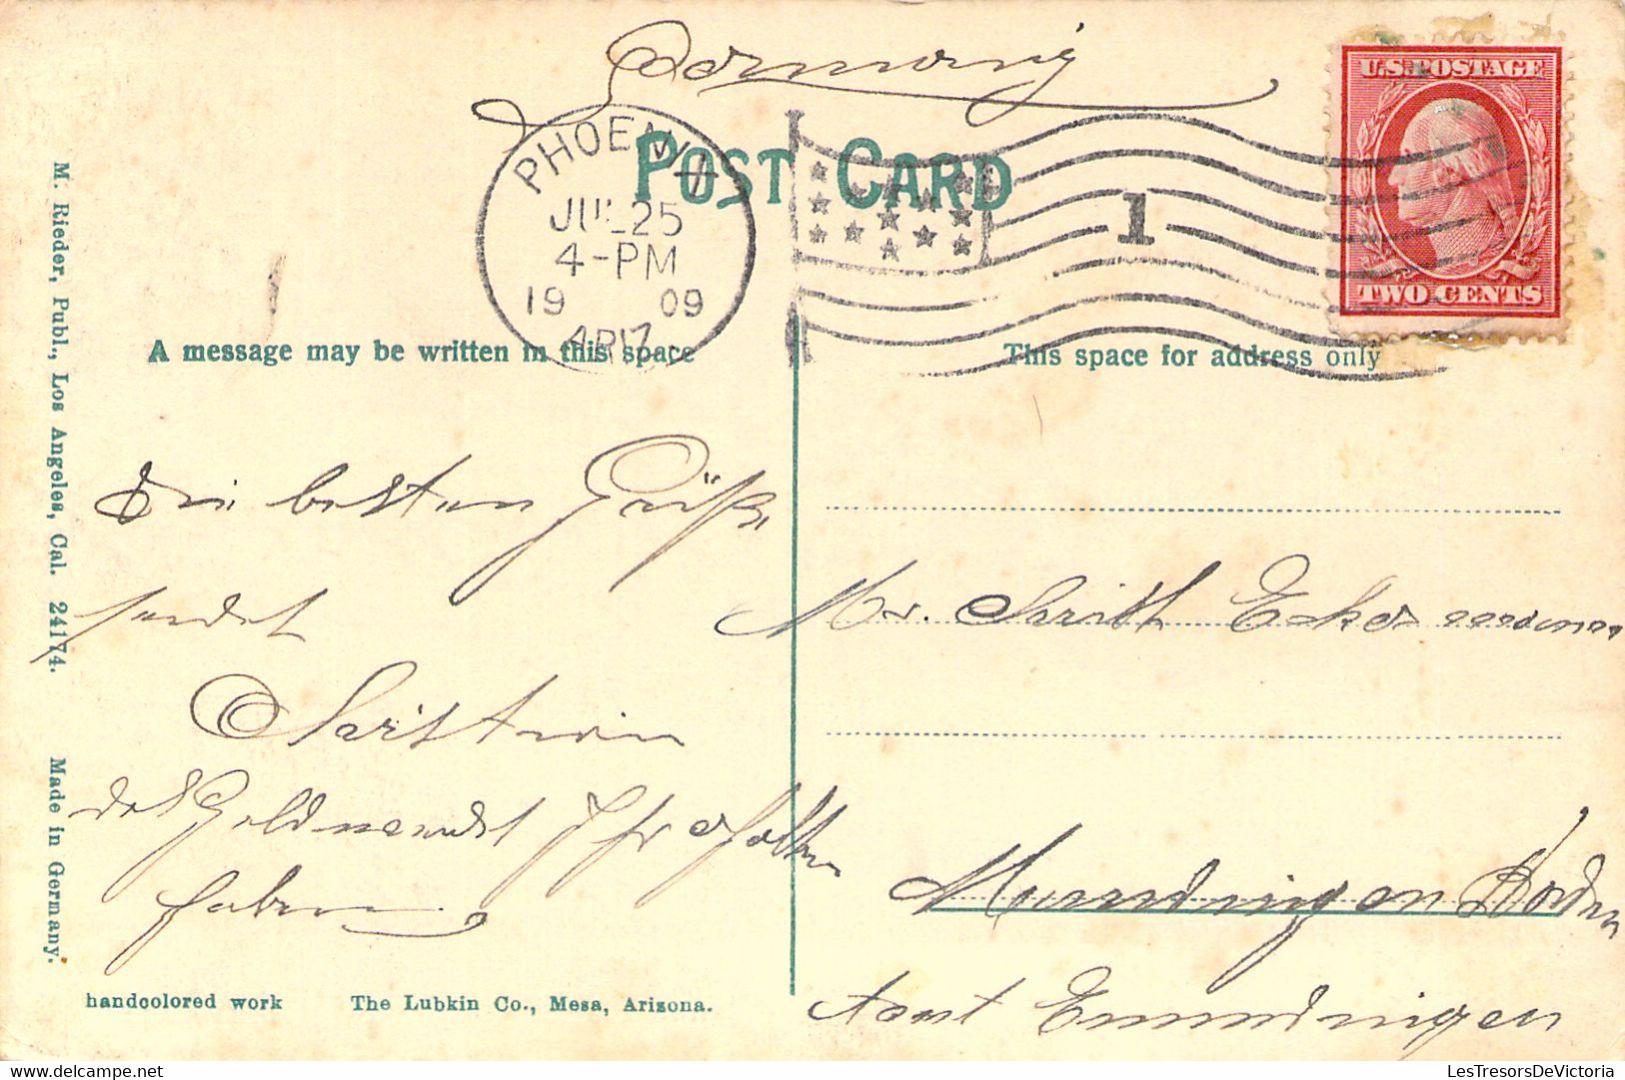 Germany
U.S. POSTAGE
TWO CENTS
PHOENIX
JUL 25
4-PM
19 09
ARIZ.
1
POST CARD
A message may be written in this space
This space for address only
M. Rieder, Publ., Los Angeles, Cal. 24174. Made in Germany.
Die besten Grüße
sendet
Christian
das Geld
haben
Mr.
Mundingen Baden
Amt Emmendingen
handcolored work The Lubkin Co., Mesa, Arizona.
LesTresorsDeVictoria